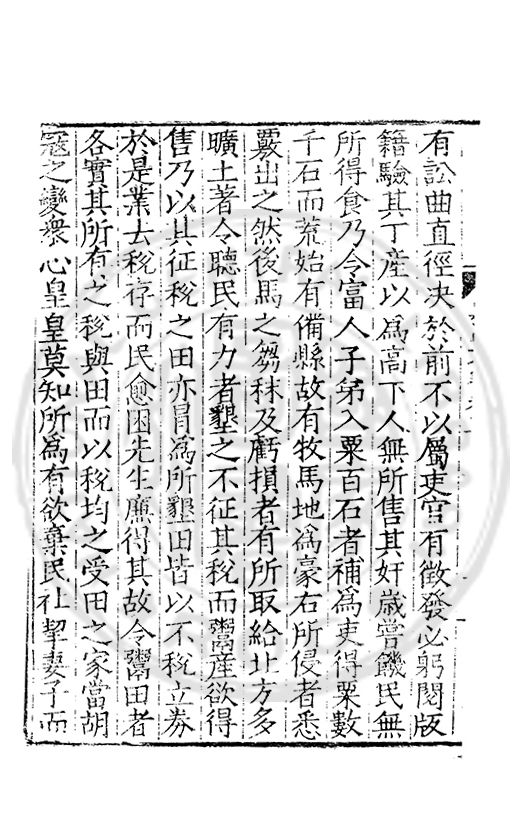 有訟曲直徑决於前不以屬吏官有徵發必躬閱版
籍驗其丁產以爲高下人無所售其奸歲嘗饑民無
所得食乃令富人子弟入粟百石者補爲吏得粟數
千石而荒始有備縣故有牧馬地爲豪右所侵者悉
覈出之然後馬之芻秣及虧損者有所取給北方多
曠土著令聽民有力者墾之不征其稅而鬻產欲得
售乃以其征稅之田亦冒爲所墾田皆以不稅立券
於是業去稅存而民愈困先生廉得其故令鬻田者
各實其所有之稅與田而以稅均之受田之家當胡
寇之變衆心皇皇莫知所爲有欲棄民社挈妻子而